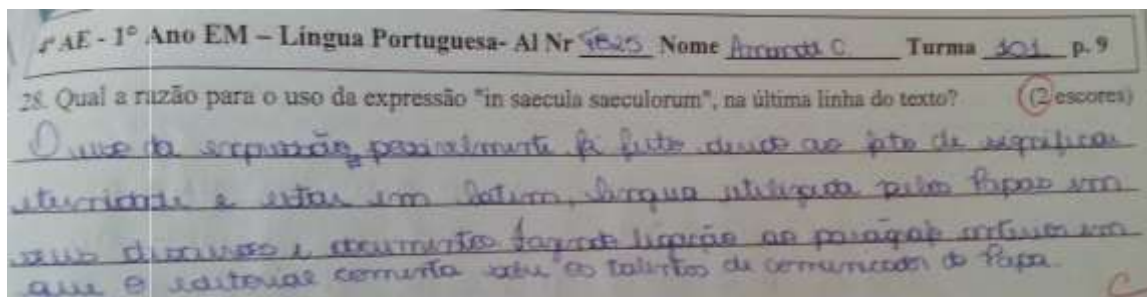 4ª AE - 1º Ano EM – Língua Portuguesa- Al Nr Nome Amanda C. Turma 101 p. 9
28. Qual a razão para o uso da expressão "in saecula saeculorum", na última linha do texto? (2 escores)
O uso da expressão, possivelmente foi feito devido ao fato de significar
eternidade e estar em latim, língua utilizada pelos Papas em
seus discursos e documentos fazendo ligação ao parágrafo anterior em
que o editorial comenta sobre os talentos de comunicador do Papa.
C